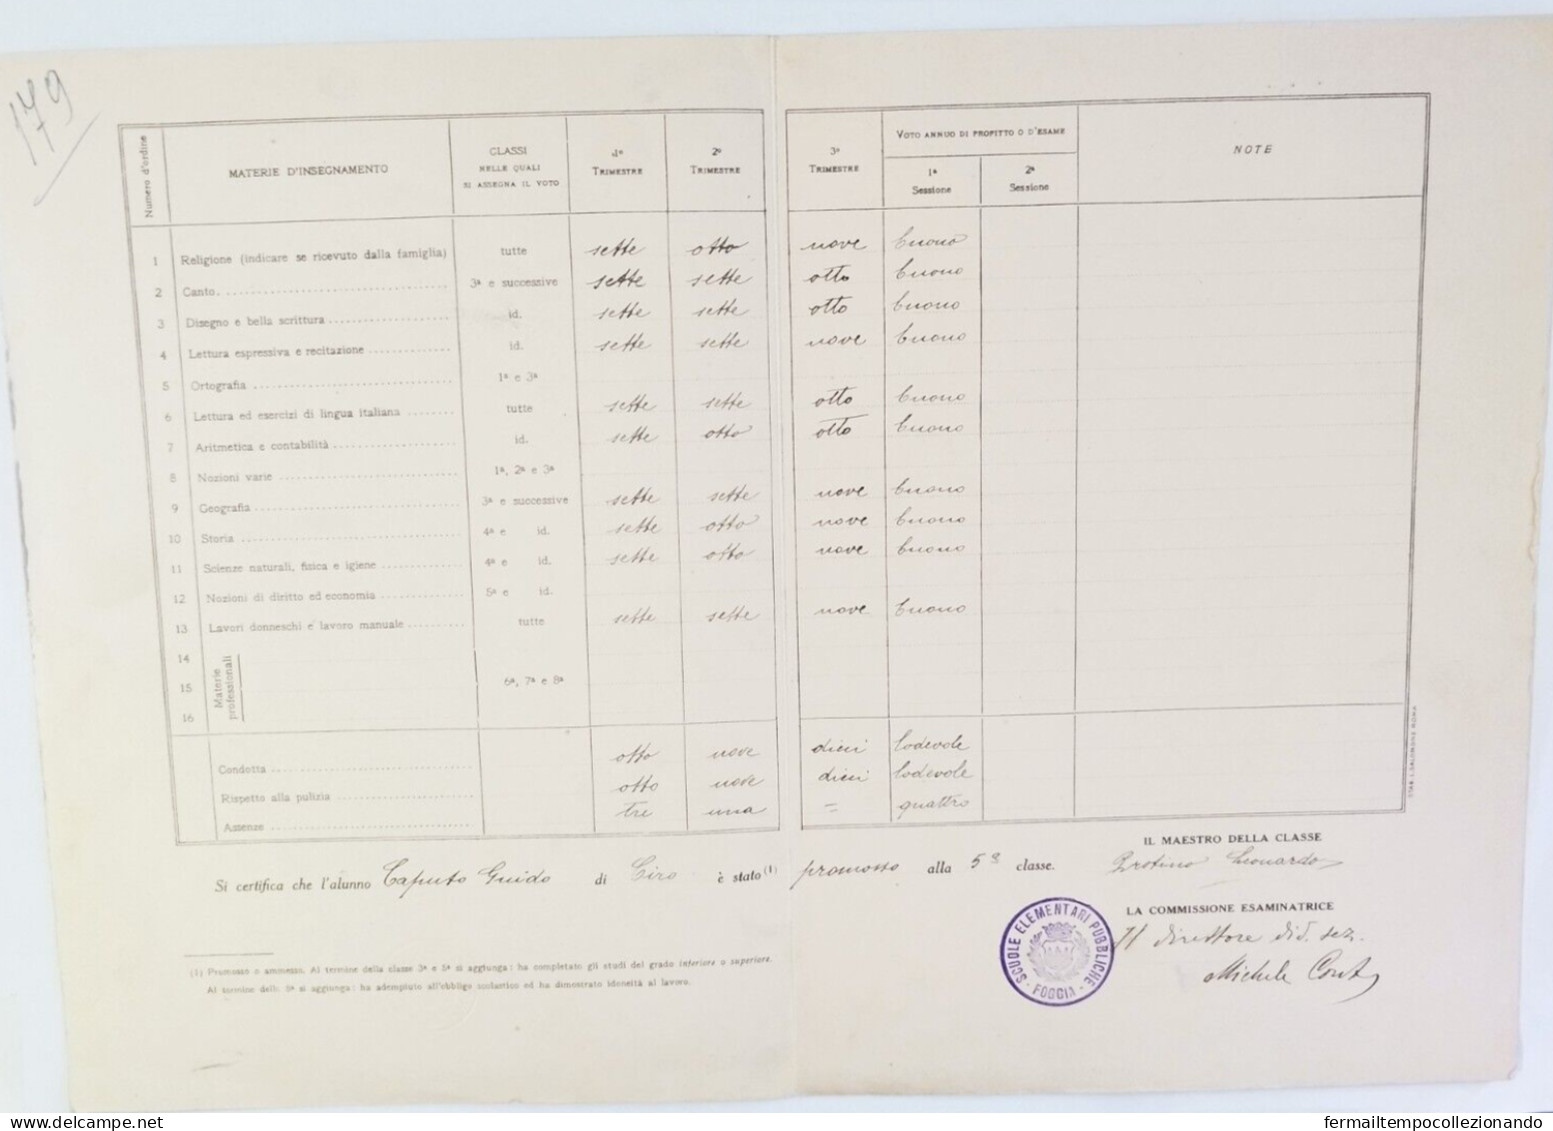 179
Numero d'ordine MATERIE D'INSEGNAMENTO CLASSI NELLE QUALI SI ASSEGNA IL VOTO 1º TRIMESTRE 2º TRIMESTRE 3º TRIMESTRE VOTO ANNUO DI PROFITTO O D'ESAME 1ª Sessione 2ª Sessione NOTE
1 Religione (indicare se ricevuto dalla famiglia) tutte sette otto nove buono
2 Canto 3ª e successive sette sette otto buono
3 Disegno e bella scrittura id. sette sette otto buono
4 Lettura espressiva e recitazione id. sette sette nove buono
5 Ortografia 1ª e 3ª
6 Lettura ed esercizi di lingua italiana tutte sette sette otto buono
7 Aritmetica e contabilità id. sette otto otto buono
8 Nozioni varie 1ª, 2ª e 3ª
9 Geografia 3ª e successive sette sette nove buono
10 Storia 4ª e id. sette otto nove buono
11 Scienze naturali, fisica e igiene 4ª e id. sette otto nove buono
12 Nozioni di diritto ed economia 5ª e id.
13 Lavori donneschi e lavoro manuale tutte sette sette nove buono
14
15 Materie professionali 6ª, 7ª e 8ª
16
Condotta otto nove dieci lodevole
Rispetto alla pulizia otto nove dieci lodevole
Assenze tre una = quattro
STAB. L. SALOMONE ROMA
IL MAESTRO DELLA CLASSE
Si certifica che l'alunno Caputo Guido di Ciro è stato (1) promosso alla 5ª classe. Leonardo
LA COMMISSIONE ESAMINATRICE
SCUOLE ELEMENTARI PUBBLICHE - FOGGIA -
Il direttore did. sez.
Michele
(1) Promosso o ammesso. Al termine della classe 3ª e 5ª si aggiunga: ha completato gli studi del grado inferiore o superiore.
Al termine della 8ª si aggiunga: ha adempiuto all'obbligo scolastico ed ha dimostrato idoneità al lavoro.
delcampe.net
fermailtempocollezionando